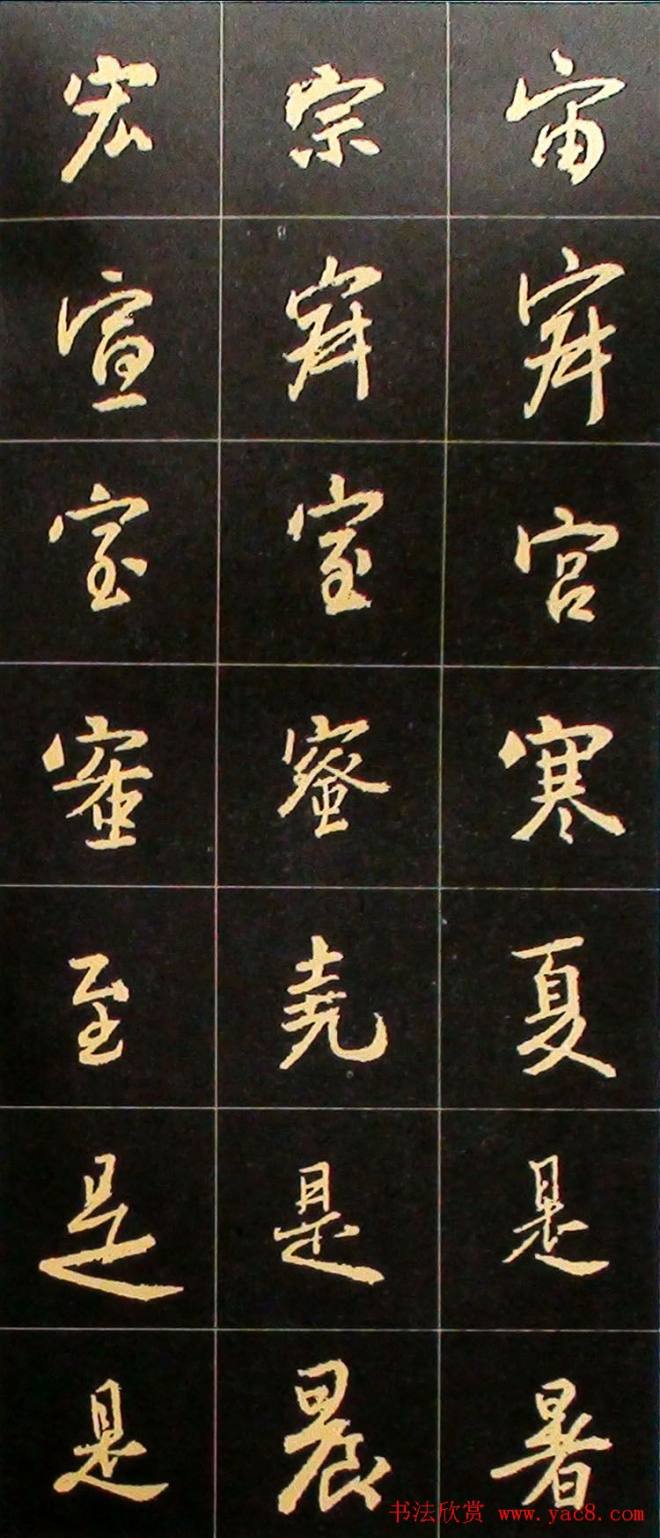 宏 宗 宙
宣 寂 寂
室 室 宫
蜜 蜜 寒
至 尧 夏
是 是 是
是 晨 暑
书法欣赏 www.yac8.com